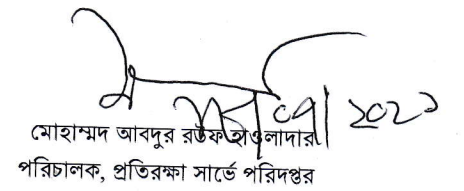 ২০২১
মোহাম্মদ আবদুর রউফ হাওলাদার
পরিচালক, প্রতিরক্ষা সার্ভে পরিদপ্তর